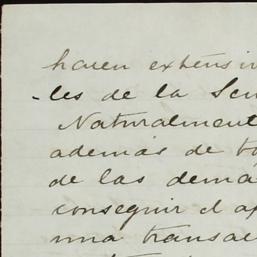 hacen extensiv
-les de la Sen
Naturalment
además de to
de las demá
conseguir el ap
una transac